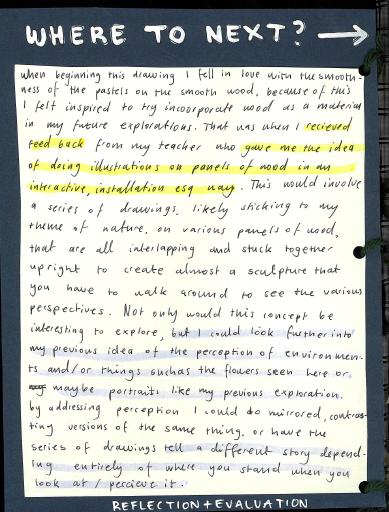 WHERE TO NEXT? →
when beginning this drawing I fell in love with the smooth-
ness of the pastels on the smooth wood, because of this
I felt inspired to try incoorporate wood as a material
in my future explorations. That was when I recieved
feed back from my teacher who gave me the idea
of doing illustrations on panels of wood in an
interactive, installation esq way. This would involve
a series of drawings, likely sticking to my
theme of nature, on various panels of wood,
that are all interlapping and stuck together
upright to create almost a sculpture that
you have to walk around to see the various
perspectives. Not only would this concept be
interesting to explore, but I could look further into
my previous idea of the perception of environmen-
ts and/or things suchas the flowers seen here or
maybe portraits like my previous exploration.
by addressing perception I could do mirrored, contras-
ting versions of the same thing, or have the
series of drawings tell a different story depend-
ing entirely of where you stand when you
look at / percieve it.
REFLECTION + EVALUATION